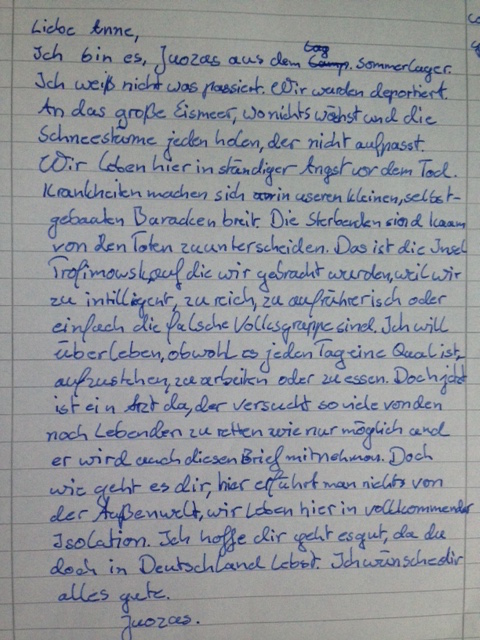 Liebe Anne,
Ich bin es, Juozas aus dem Sommerlager.
Ich weiß nicht was passiert. Wir wurden deportiert.
An das große Eismeer, wo nichts wächst und die
Schneestürme jeden holen, der nicht aufpasst.
Wir leben hier in ständiger Angst vor dem Tod.
Krankheiten machen sich in unseren kleinen, selbst-
gebauten Baracken breit. Die Sterbenden sind kaum
von den Toten zu unterscheiden. Das ist die Insel
Trofimowsk, auf die wir gebracht wurden, weil wir
zu intilligent, zu reich, zu aufrührerisch oder
einfach die falsche Volksgruppe sind. Ich will
überleben, obwohl es jeden Tag eine Qual ist,
aufzustehen, zu arbeiten oder zu essen. Doch jetzt
ist ein Arzt da, der versucht so viele von den
noch Lebenden zu retten wie nur möglich und
er wird auch diesen Brief mitnehmen. Doch
wie geht es dir, hier erfährt man nichts von
der Außenwelt, wir leben hier in vollkommender
Isolation. Ich hoffe dir geht es gut, da du
doch in Deutschland lebst. Ich wünsche dir
alles gute.
Juozas.